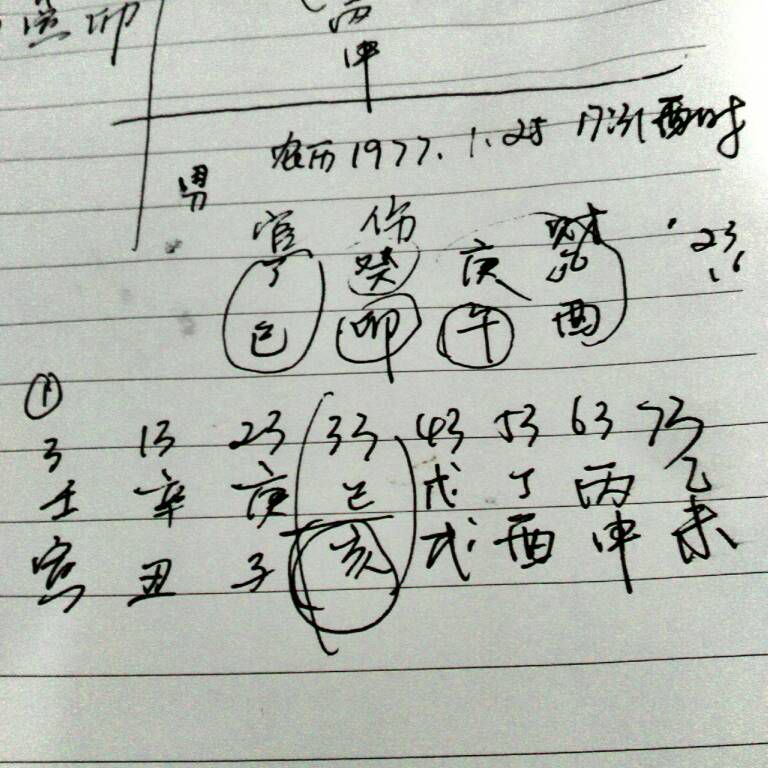 卯 丙
申
农历1977.1.25 17:31酉时
男
官 伤 财
丁 癸 庚 乙 23
巳 卯 午 酉
①
3 13 23 33 43 53 63 73
壬 辛 庚 己 戊 丁 丙 乙
寅 丑 子 亥 戌 酉 申 未